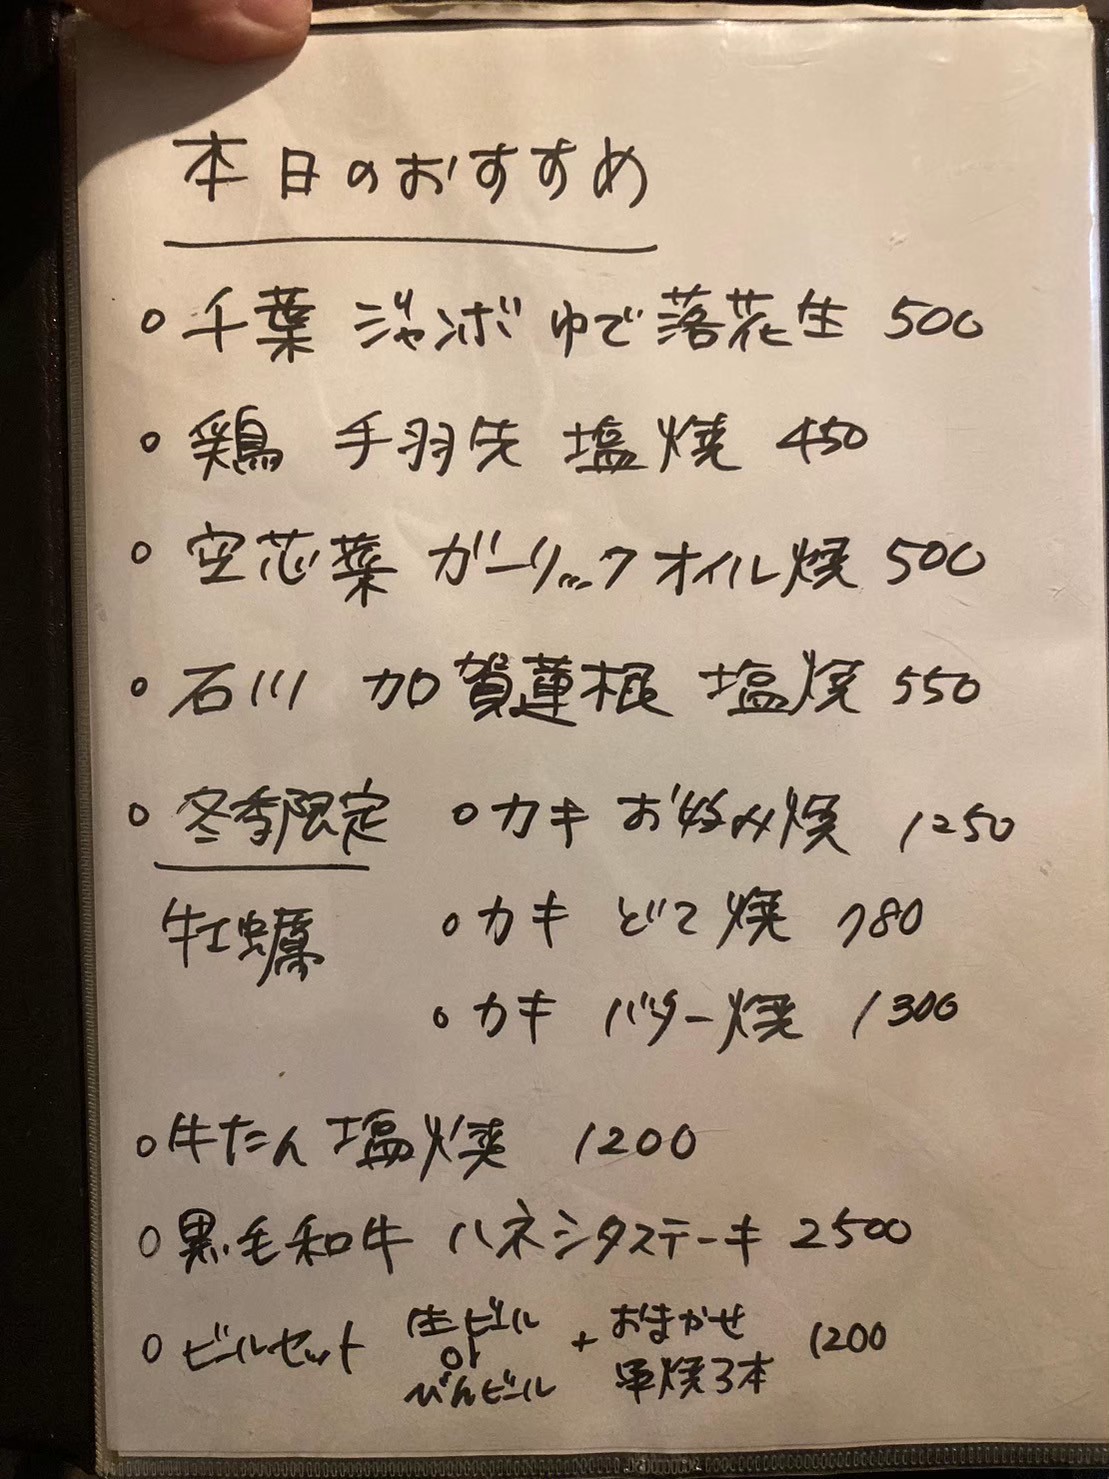 本日のおすすめ
○ 千葉 ジャンボ ゆで落花生 500
○ 鶏 手羽先 塩焼 450
○ 空芯菜 ガーリックオイル焼 500
○ 石川 加賀蓮根 塩焼 550
○ 冬季限定 ○カキ お好み焼 1250
牡蠣 ○カキ どて焼 780
○カキ バター焼 1300
○牛たん 塩焼 1200
○黒毛和牛 ハネシタステーキ 2500
○ ビールセット 生ビール or びんビール + おまかせ 串焼3本 1200